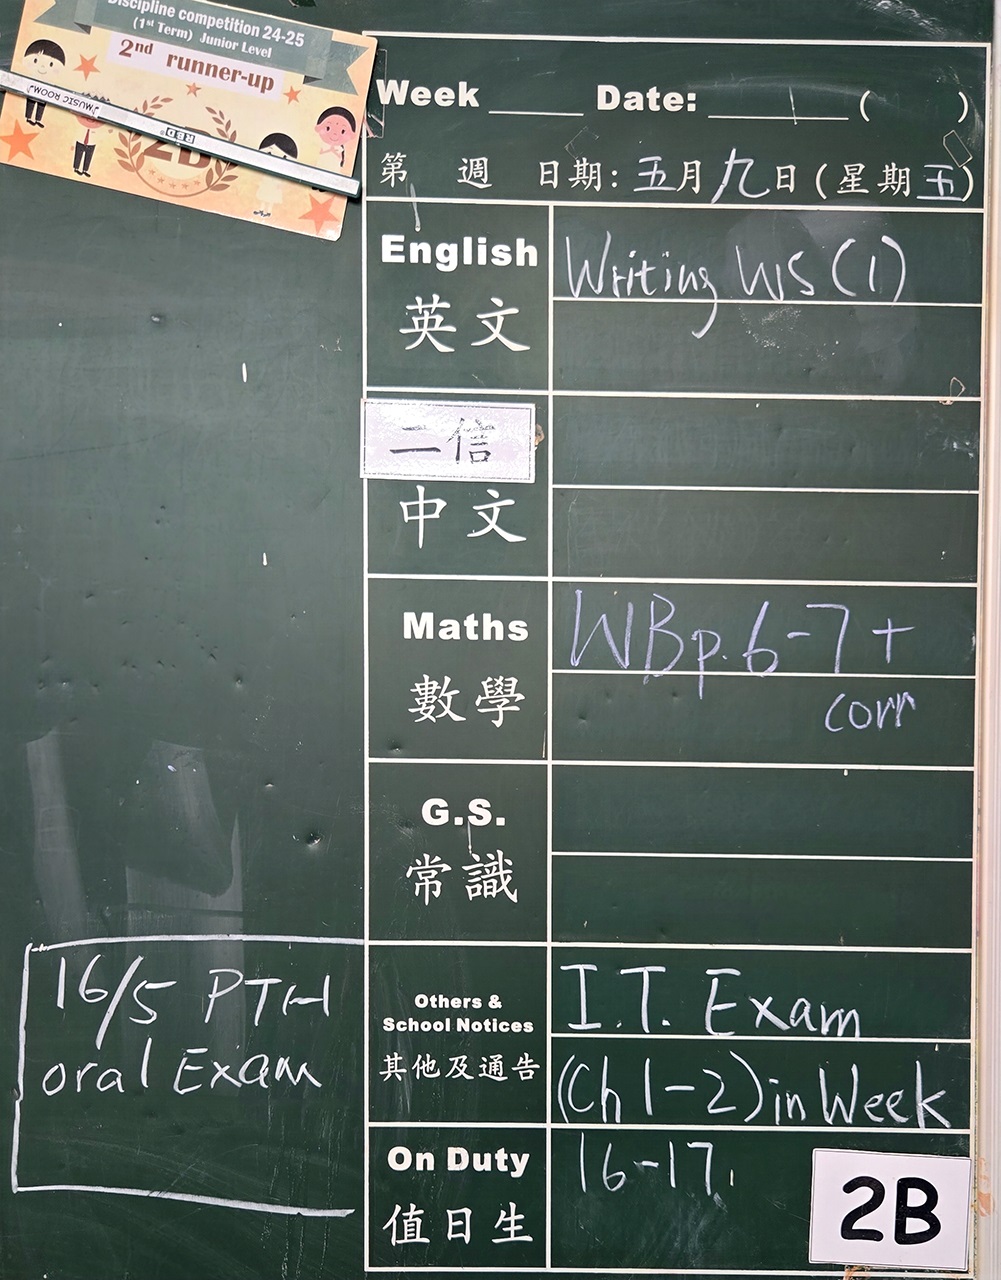 Discipline competition 24-25
(1st Term) Junior Level
2nd runner-up
♪MUSIC ROOM♪
RBD
2B
Week ______ Date: ________ ( )
第 週 日期: 五月九日 (星期五)
English
英文
Writing WS (1)
二信
中文
Maths
數學
WB p.6-7 +
corr
G.S.
常識
16/5 PTH
oral Exam
Others &
School Notices
其他及通告
I.T. Exam
(Ch 1-2) in Week
On Duty
值日生
16-17.
2B